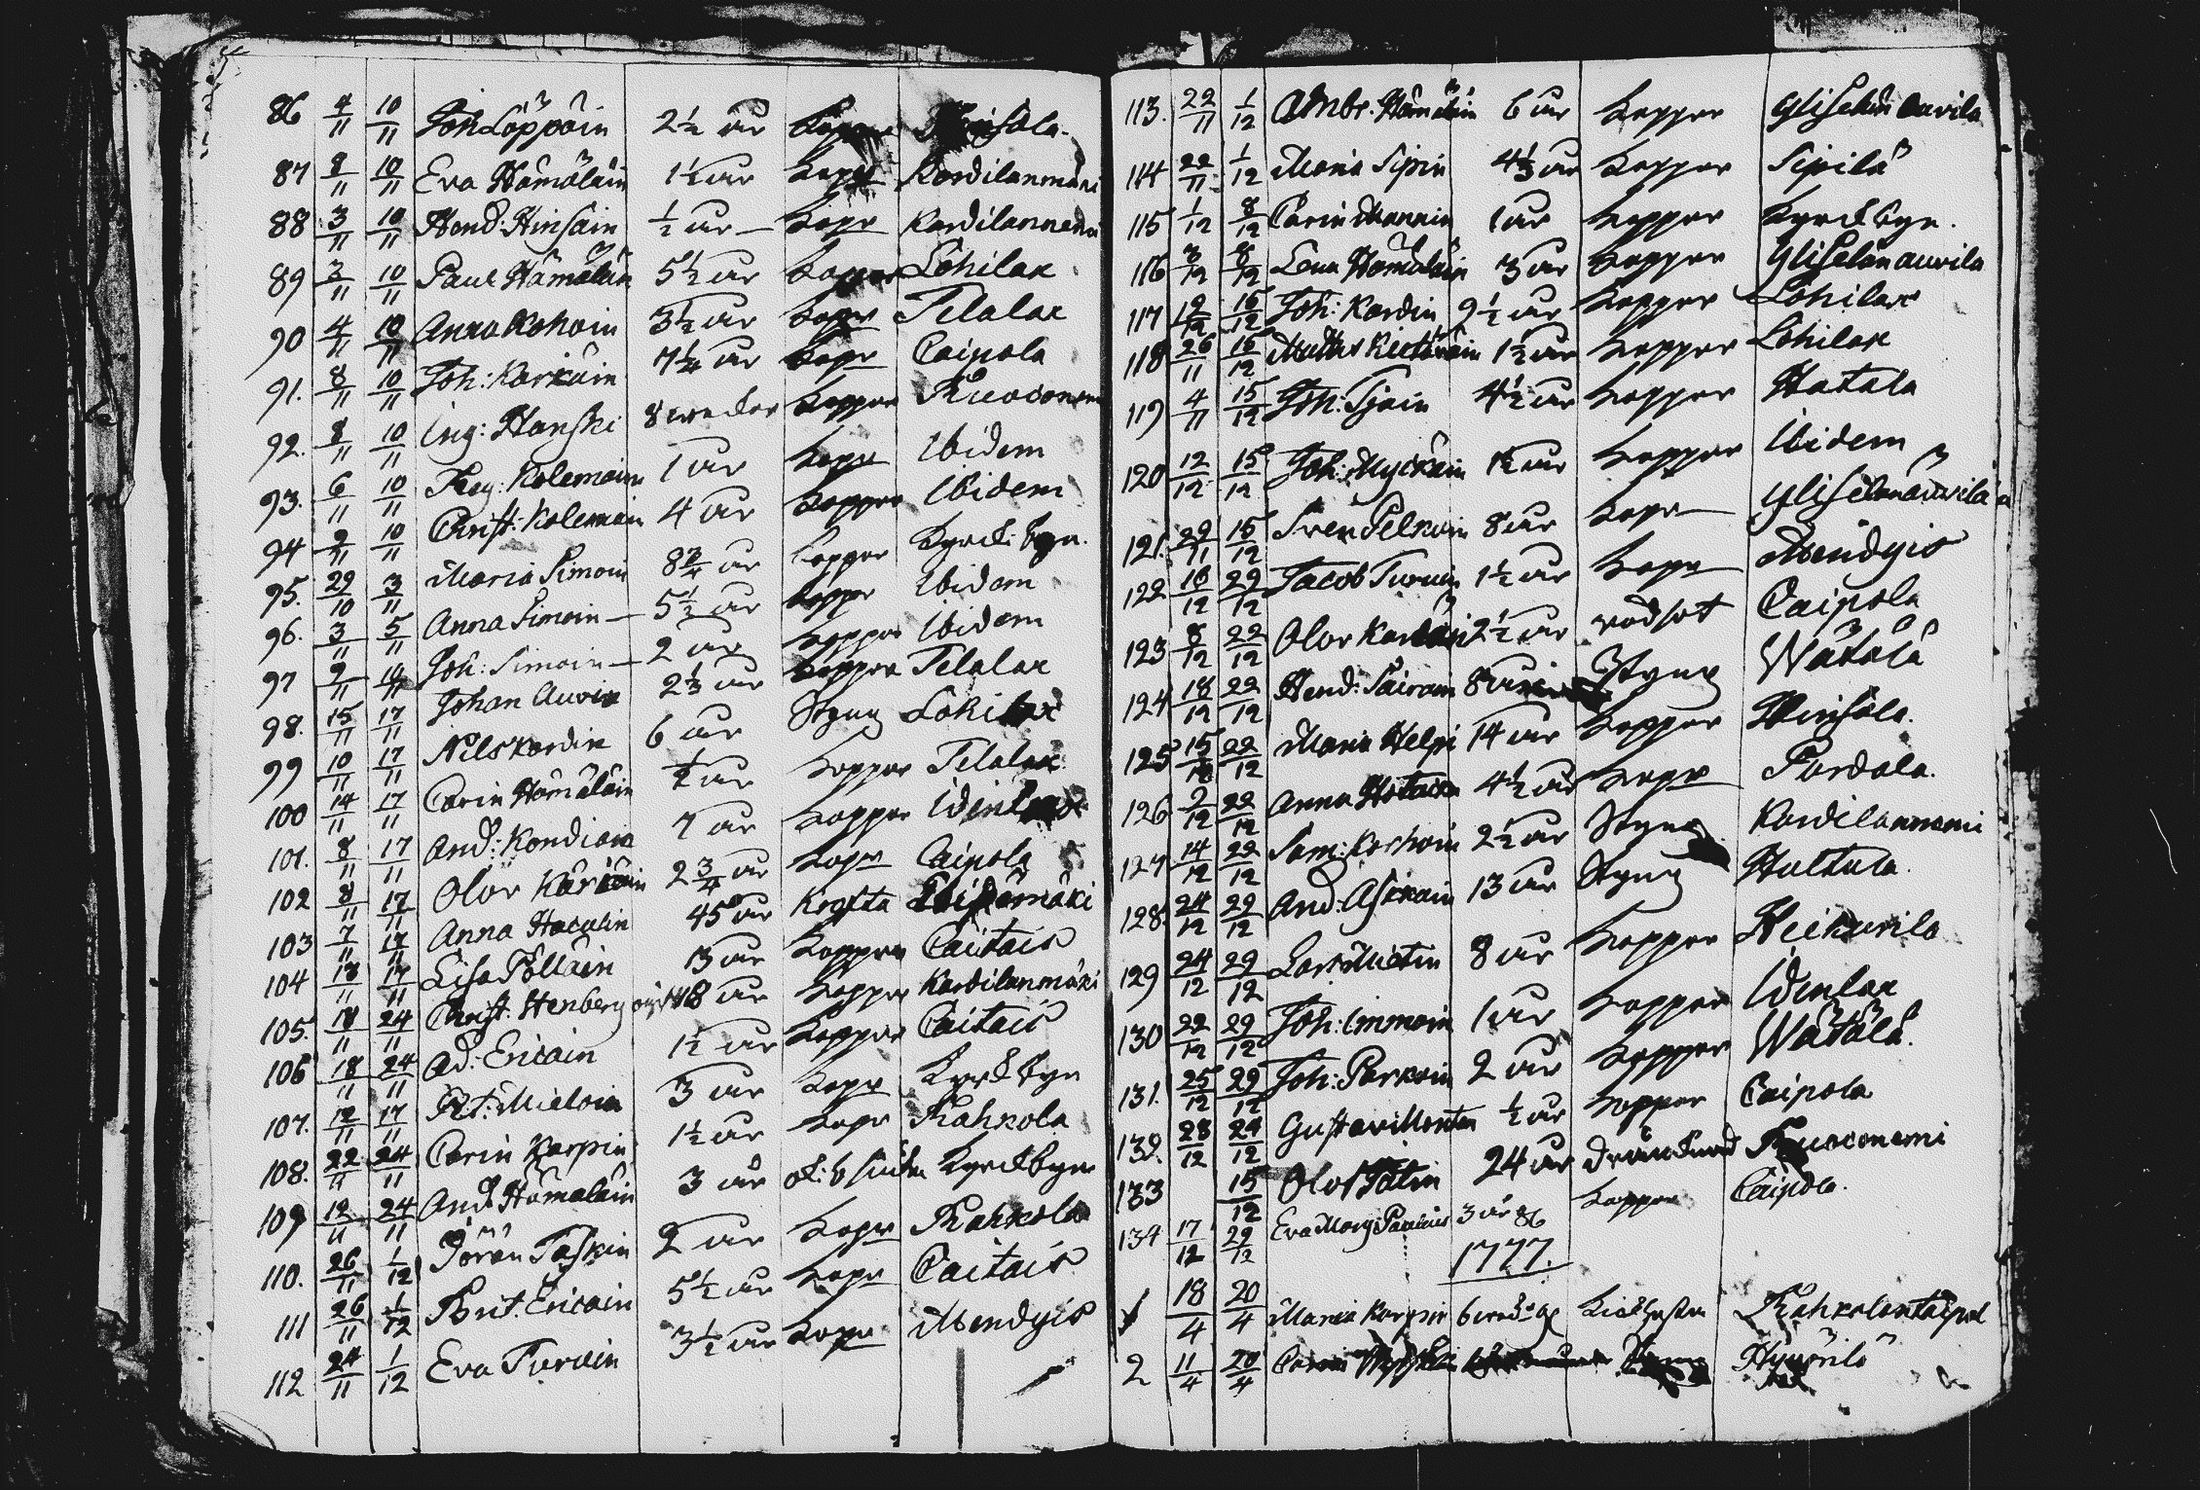 86 4/11 10/11 Joh Löppöin 2 1/2 år Koppor
87 8/11 10/11 Eva Hämäläin 1 1/2 år Kopor Kardilanmäki
88 3/11 10/11 Hend: Hinsain 1/2 år Kopr Kardilanmäki
89 3/11 10/11 Paul Hämäläin 5 1/2 år Koppor Lohilax
90 4/11 10/11 Anna Kohoin 3 1/2 år Kopr Telalax
91. 8/11 10/11 Joh: Karkäin 7 1/4 år Kopr Caipola
92. 8/11 10/11 Ing: Hanski 8 weckor Koppor Ruoconemi
93. 6/11 10/11 Kolemain 1 år Kopr Ibidem
94 9/11 10/11 Christ: Kolemain 4 år Koppor Ibidem
95. 29/10 3/11 Maria Simoin 8 3/4 år Koppor Kyrck: byn.
96. 3/11 5/11 Anna Simoin 5 1/2 år Koppr Ibidem
97 9/11 10/11 Joh: Simoin 2 år Koppor Ibidem
98. 15/11 17/11 Johan Auvin 2 1/3 år Koppor Telalax
99 10/11 17/11 Nils Kardin 6 år Styng Lohilax
100 14/11 17/11 Carin Hämäläin 1/2 år Koppor Telalax
101. 8/11 17/11 And: Kondiain 7 år Koppor Idenlax
102 8/11 17/11 Olov Kärkäin 2 3/4 år Kopr Caipola
103 7/11 17/11 Anna Hacalin 45 år Krafta
104 13/11 17/11 Lisa Pölläin 13 år Koppor Caitais
105. 18/11 24/11 Christ: Stenberg 18 år Koppor Kardilanmäki
106 18/11 24/11 Ad: Ericain 1 1/2 år Koppor Caitais
107. 12/11 17/11 Pet: Mieloin 3 år Kopr Kyrckbyn
108. 22/11 24/11 Carin Karpin 1 1/2 år Kopr Rahkola
109 12/11 24/11 And: Hämäläin 3 år Kyrckbyn
110. 26/11 1/12 Jöran Taskin 2 år Kopr Rahkola
111 26/11 1/12 Brit. Ericain 5 1/2 år Kopr Caitais
112 24/11 1/12 Eva Turain 3 1/2 år Kopr Mendyis
113. 22/11 1/12 Ambr: Hämäläin 6 år Koppor Yliselän auvila
114 22/11 1/12 Maria Sipin 4 1/3 år Koppor Sipilä
115 1/12 8/12 Carin Mannin 1 år Koppor Kyrckbyn.
116 3/12 8/12 Lena Hämäläin 3 år Koppor Yliselän auvila
117 12/12 15/12 Joh: Kardin 9 1/2 år Koppor Lohilax
118 26/11 15/12 1 1/2 år Koppor Lohilax
119 4/11 15/12 Joh: Sjöin 4 1/2 år Koppor Hatala
120 12/12 15/12 Joh: Myckäin 1 1/2 år Koppor Ibidem
121. 29/11 15/12 Sven Pelkoin 8 år Kopr Yliselänauvila
122 16/12 22/12 Jacob Turuin 1 1/2 år Kopr Mendyis
123 8/12 22/12 Olov 2 1/2 år rödsot Caipola
124 18/12 22/12 Hend: Sairain 8 år Styng Wätälä
125 15/12 22/12 Maria Helpi 14 år Koppor Hinsala.
126 9/12 22/12 Anna 4 1/2 år Kopr Pardala.
127 14/12 22/12 Sam: Korhoin 2 1/2 år Styng Kardilanmäki
128. 24/12 29/12 And: Askain 13 år Styng Haltula.
129 24/12 29/12 Lars Mietin 8 år Koppor Heikurila
130 22/12 29/12 Joh: Immoin 1 år Koppor Idenlax
131. 25/12 29/12 Joh: Parkoin 2 år Koppor Wätälä.
132. 28/12 29/12 Gustav Monten 1/2 år Koppor Caipola
133 15/12 Olof Pätin 24 år Ruoconemi
134 17/12 29/12 Eva Marg 3 år Koppor Caipola.
1777.
1 18/4 20/4 Maria Karpin Kickhosta
2 11/4 20/4 Hyvärilä